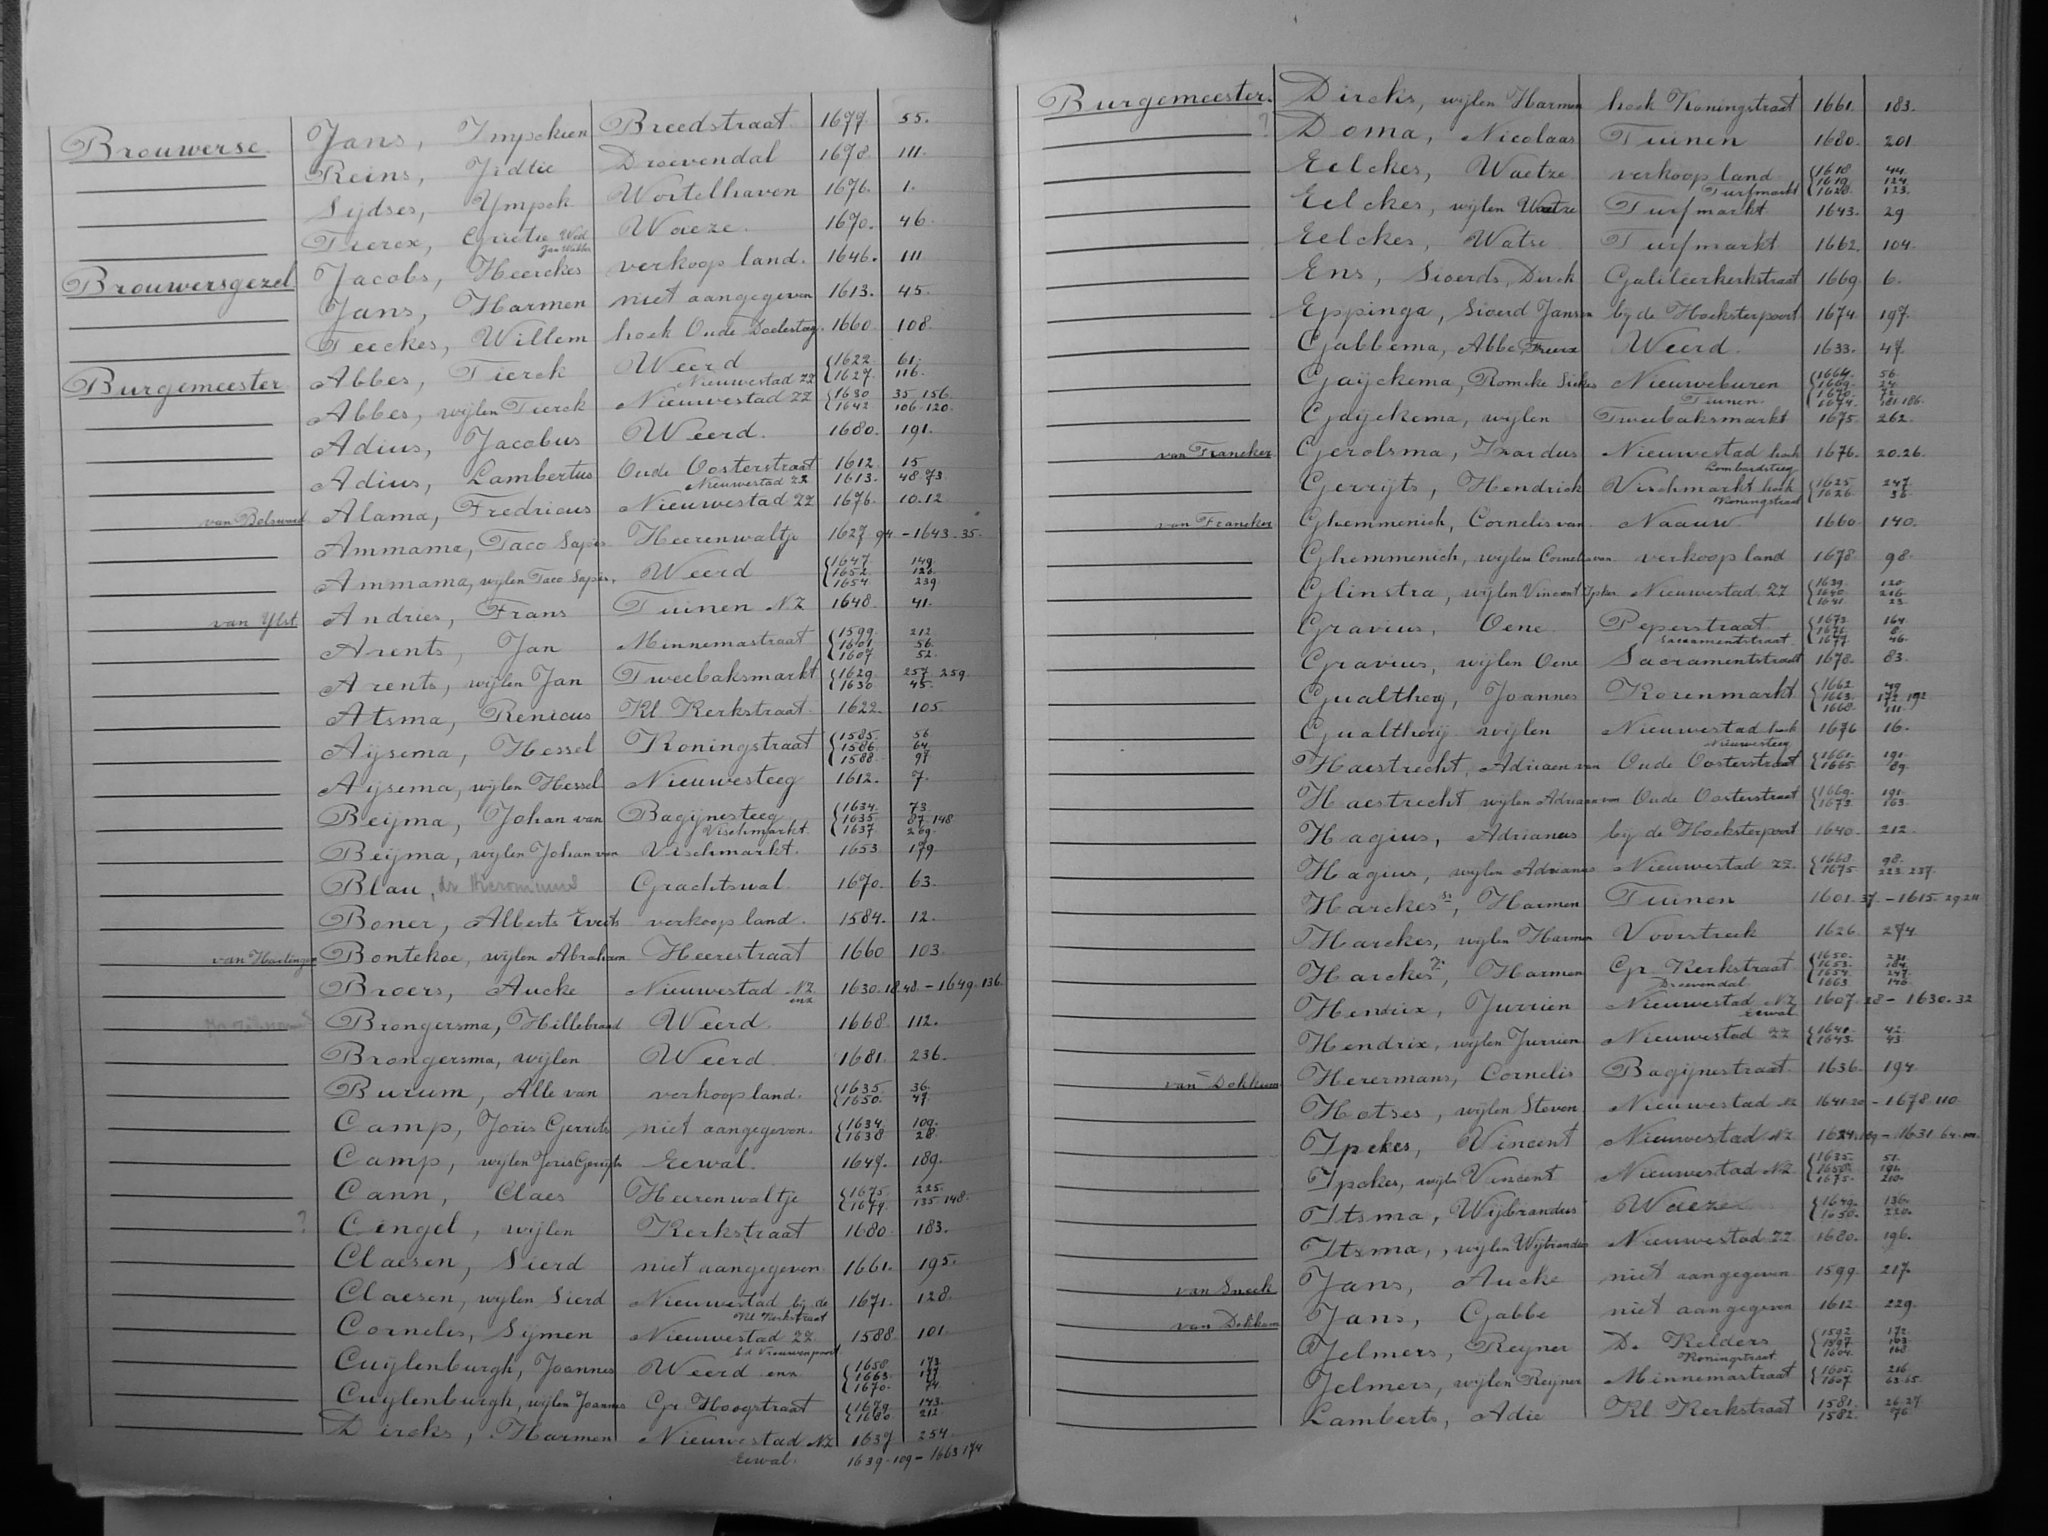 Brouwerse. Jans, Impckien Breedstraat 1677 55.
Reins, Jrdtie Droevendal 1678. 111.
Sijdses, Ympck Wortelhaven 1676. 1.
Tierex, Grietie Wed. Jan Wabbes Waeze. 1670. 46.
Brouwersgezel Jacobs, Heerckes verkoop land. 1646. 111
Jans, Harmen niet aangegeven 1613. 45.
Teeckes, Willem hoek Oude Doelesteeg. 1660. 108.
Burgemeester Abbes, Tierck Weerd 1622. 61.
Nieuwestad ZZ 1627. 116.
Abbes, wijlen Tierck Nieuwestad ZZ 1630 35.156.
1642 106.120.
Adius, Jacobus Weerd. 1680. 191.
Adius, Lambertus Oude Oosterstraat 1612. 15
Nieuwestad ZZ 1613. 48.73.
van Bolsward Alama, Fredricus Nieuwestad ZZ 1676. 10.12
Ammama, Taco Sapes Heerenwaltje 1627. 94. - 1643. 35.
Ammama, wijlen Taco Sapes. Weerd 1647. 149.
1652. 126.
1654. 239.
van Ylst. Andries, Frans Tuinen NZ 1648. 41.
Arents, Jan Minnemastraat 1599. 212
1601 56.
1607 52.
Arents, wijlen Jan Tweebaksmarkt 1629. 257. 259.
1630 45.
Atsma, Renicus Kl. Kerkstraat. 1622. 105.
Aijsema, Hessel Koningstraat 1585. 56.
1586. 64.
1588. 97.
Aijsema, wijlen Hessel Nieuwesteeg 1612. 7.
Beijma, Johan van Bagijnesteeg 1634. 73.
Vischmarkt. 1635. 87.148
1637 269.
Beijma, wijlen Johan van Vischmarkt. 1653 179.
Blau, dr Hieronimus Grachtswal. 1670. 63.
Boner, Alberts Everts verkoop land. 1584. 12.
van Harlingen Bontekoe, wijlen Abraham Heerestraat 1660 103.
Broers, Aucke Nieuwestad NZ enz 1630.18.48. - 1649. 136.
Brongersma, Hillebrand Weerd. 1668. 112.
Brongersma, wijlen Weerd. 1681. 236.
Burum, Alle van verkoop land. 1635. 36.
1650. 49.
Camp, Joris Gerrits niet aangegeven. 1634. 109.
1638 28.
Camp, wijlen Joris Gerrijts Eewal. 1647. 189.
Cann, Claes Heerenwaltje 1675. 225.
1679. 135.148.
? Cingel, wijlen Kerkstraat 1680. 183.
Claesen, Sierd niet aangegeven 1661. 195.
Claesen, wijlen Sierd Nieuwestad bij de 1671. 128.
Kl. Kerkstraat
Cornelis, Sijmen Nieuwestad ZZ 1588. 101.
b.d. Vrouwenpoort
Cuijlenburgh, Joannes Weerd enz 1658 173.
1663. 177
1670. 74.
Cuijlenburgh, wijlen Joannes Gr. Hoogstraat 1679. 143.
1680. 212.
Dircks, Harmen Nieuwestad NZ 1637 254.
Eewal. 1639.109 - 1663 174
Burgemeester. Dircks, wijlen Harmen hoek Koningstraat 1661. 183.
? Doma, Nicolaas Tuinen 1680. 201
Eelckes, Waetze verkoop land 1618 44.
Turfmarkt 1619. 124.
1620. 123.
Eelckes, wijlen Waetze Turfmarkt. 1643. 29
Eelckes, Watse Turfmarkt 1662. 104.
Ens, Sioerds, Dirck Galileerkerkstraat 1669. 6.
Eppinga, Sioerd Jansen bij de Hoeksterpoort 1674. 197.
Gabbema, Abbe Weerd. 1633. 47.
Gaijckema, Romcke Siekes Nieuweburen 1664. 56.
1669. 24.
Tuinen. 1670. 72.
1674. 181.186.
Gaijckema, wijlen Tweebaksmarkt 1675. 262.
van Franeker Gerolsma, Ixardus Nieuwestad hoek 1676. 20.26.
Lombardsteeg
Gerrijts, Hendrick Vischmarkt hoek 1625 247.
Koningstraat 1626. 36.
van Franeker Ghemmenich, Cornelis van Naauw 1660. 140.
Ghemmenich, wijlen Cornelis van verkoop land 1678. 98.
Glinstra, wijlen Vincent Ipkes Nieuwestad ZZ 1639. 120.
1640. 216.
1641. 23.
Gravius, Oene Peperstraat 1673. 164.
Sacramentstraat. 1676. 8.
1677. 46.
Gravius, wijlen Oene Sacramentstraat 1678. 83.
Gualtherij, Joannes Korenmarkt 1662 49
1663. 172.192
1668. 111.
Gualtherij wijlen Nieuwestad hoek 1676 16.
Nieuwesteeg
Haestrecht, Adriaen van Oude Oosterstraat 1661. 191.
1665. 89.
Haestrecht wijlen Adriaen van Oude Oosterstraat 1669. 191.
1673. 163.
Hagius, Adrianus bij de Hoeksterpoort 1640. 212.
Hagius, wijlen Adrianus Nieuwestad ZZ. 1668. 98.
1675 223.237.
Harckes Sr, Harmen Tuinen 1601.37. - 1615. 29.211
Harckes, wijlen Harmen Voorstreek 1626. 274.
Harckes Jr, Harmen Gr. Kerkstraat 1650. 231.
1653. 184.
Droevendal 1654. 247.
1663. 146.
Hendrix, Jurrien Nieuwestad NZ. 1607.28 - 1630.32
Eewal
Hendrix, wijlen Jurrien Nieuwestad ZZ 1640. 42.
1643. 43.
van Dokkum Herermans, Cornelis Bagijnestraat. 1636. 194.
Hotses, wijlen Steven Nieuwestad NZ 1641.20 - 1678.110
Ipckes, Vincent Nieuwestad NZ 1624.189 - 1631.64.
Ipckes, wijlen Vincent Nieuwestad NZ 1635. 51.
1650. 191.
1675. 210.
Itsma, Wijbrandus Waeze 1649. 136.
1650. 220.
Itsma, wijlen Wijbrandus Nieuwestad ZZ 1680. 196.
van Sneek Jans, Aucke niet aangegeven 1599. 217.
van Dokkum Jans, Gabbe niet aangegeven 1612. 229.
Jelmers, Reyner De Kelders 1592 172.
Koningstraat. 1597 163.
1604. 168
Jelmers, wijlen Reijner Minnemastraat 1605. 216.
1607. 63.65.
Lamberts, Adie Kl. Kerkstraat 1581. 26.27.
1582. 76